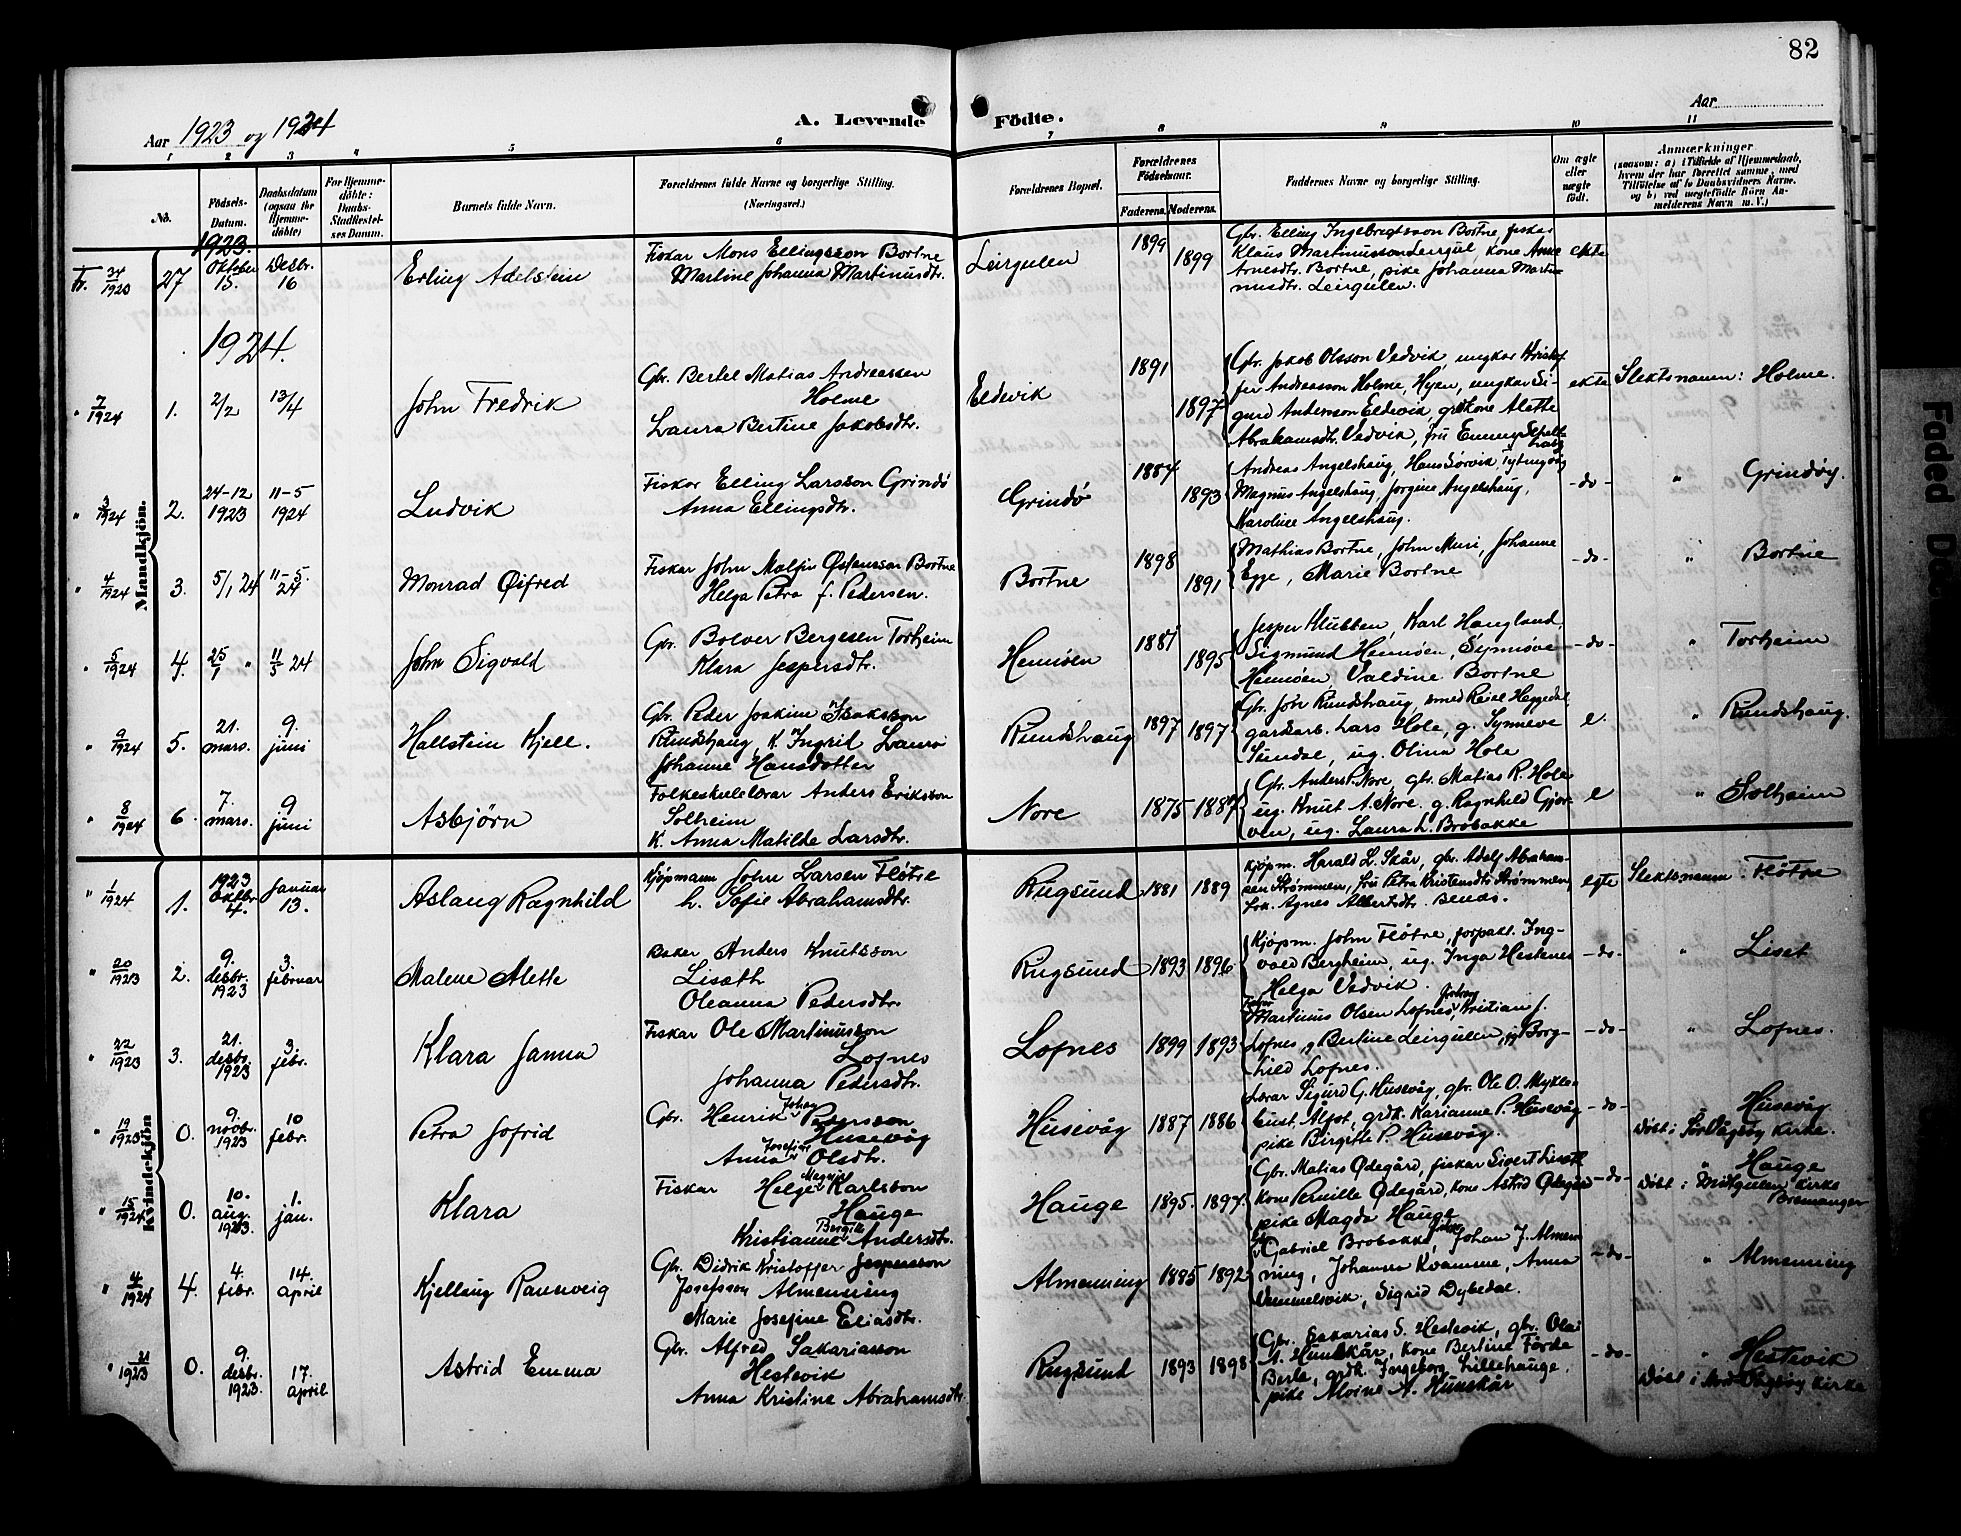 82
Aar 1923 og 1924
A. Levende Födte.
Aar
1 2 3 4 5 6 7 8 9 10 11
No.
Födsels-Datum.
Daabsdatum (ogsaa for Hjemme-döbte)
For Hjemme-döbte: Daabs-Stadfæstel-ses Datum.
Barnets fulde Navn.
Forældrenes fulde Navne og borgerlige Stilling. (Næringsvei.)
Forældrenes Bopæl.
Forældrenes Födselsaar.
Faderens. Moderens.
Faddernes Navne og borgerlige Stilling.
Om ægte eller uægte födt.
Anmærkninger
(saasom: a) i Tilfælde af Hjemmedaab,
hvem der har forrettet samme, med
Tilföielse af to Daabsvidners Navne,
og b) ved uægtefödte Börn An-
melderens Navn m. V.)
Mandkjön.
1923.
27 Oktober 15. Desbr. 16
Erling Adelstein
Fiskar Mons Ellingsson Bortne
Martine Johanna Martinusdtr.
Leirgulen 1899 1899
Gbr. Elling Ingebregtsson Bortne, fiskar
Klaus Martinusson Leirgul, kone Anne
Arnesdtr. Bortne, pike Johanna Marti-
nusdtr. Leirgulen.
ekte
1924.
7/1924 1. 2/2 13/4
John Fredrik
Gbr. Bertel Matias Andreassen
Holme
Laura Bertine Jakobsdtr.
Eldevik 1891 1897
Gbr. Jakob Olsson Vedvik, ungkar Kristof
fer Andreasson Holme, Hyen, ungkar Si-
gurd Andersson Eldevik, grdkone Alette
Abrahamsdtr. Vedvik, fru Emmy
ekte Slektsnamn: Holme.
3/1924 2. 24-12 1923 11-5 1924
Ludvik
Fiskar Elling Larsson Grindö
Anna Ellingsdtr.
Grindø 1884 1893
Andreas Angelshaug, Hans Sørvik
Magnus Angelshaug, Jorgine Angelshaug,
Karoline Angelshaug.
-do- " Grindøy.
4/1924 3. 5/1 24 11-5 24
Monrad Øifred
Fiskar John Malfin Østensson Bortne
Helga Petra f. Pedersen.
Bortne 1898 1891
Mathias Bortne, John Muri, Johanne
Egge, Marie Bortne
-do- " Bortne
5/1924 4. 25/1 " 11/5 24
John Sigvald
Gbr. Bolver Bergesen Torheim
Klara Jespersdtr.
Hennøen 1881 1895
Jesper Klubben, Karl Haugland,
Sigmund Hennøen, Synnøve
Hennøen Valdine Bortne
-do- " Torheim
9/1924 5. 21. mars. 9. juni
Hallstein Kjell.
Gbr. Peder Joakim Isaksson
Rundshaug, K. Ingrid Laura
Johanne Hansdotter
Rundshaug 1897 1897
Gbr. Joh Rundshaug, smed Reial Heggedal
gardarb. Lars Hole, g. Synneve
Sundal, ug. Olina Hole
e. " Rundshaug.
8/1924 6. 7. mars. 9 juni
Asbjörn
Folkeskulelærar Anders Eriksson
Solheim
K. Anna Matilde Larsdtr.
Nore 1875 1887
Gbr. Anders P. Nore, gbr. Matias R. Hole
ug. Knut A. Nore. g. Ragnhild Gjør-
ven, ug. Laura L. Brobakke
e " Solheim
Kvindekjön
1/1924 1. 1923 Oktbr. 4. Januar 13.
Aslaug Ragnhild
Kjøpmann John Larsen Fløtre
h. Sofie Abrahamsdtr.
Rugsund 1881 1889
Kjøpm. Harald L. Skår, gbr. Adolf Abraham-
sen Strømmen, fru Petra Kristendtr. Strømmen,
frk. Agnes Albertsdtr. Bendø.
egte Slektsnamn: Fløtre
20/1923 2. 9. desbr. 1923 3. februar
Malene Alette
Baker Anders Knutsson
Liseth
Oleanna Pedersdtr.
Rugsund 1893 1896
Kjøpm. John Fløtre, forpakt. Ing-
vald Bergheim, ug. Inga Hestenes
Helga Vedvik.
-do- " Liset
22/1923 3. 21. desbr. 1923 3. febr.
Klara Janna
Fiskar Ole Martinusson
Lofnes
Johanna Pedersdtr.
Lofnes 1899 1893
Fiskar Martinus Olsen Lofnes, Kristian J.
Lofnes, Berline Leirgulen, pi Borg-
hild Lofnes.
-do- " Lofnes.
19/1923 0. 9. novbr. 1923 10 febr.
Petra Jofrid
Gbr. Henrik Johan Petersson
Husevåg
Anna Josefine Olsdtr.
Husevåg 1887 1886
Lærar Sigurd G. Husevåg, gbr. Ole O. Mykle-
bust. Ålfot, grdk. Karianne P. Husevåg
pike Birgitte P. Husevåg.
-do- Husevåg
Døbt i Sør Vågsøy Kirke.
15/1924 0. 10. aug. 1923. 1. jan.
Klara
Fiskar Helge Magnus Karlsson
Hauge
Kristianne Bergitte Andersdtr.
Hauge 1895. 1897.
Gbr. Matias Ødegård, fiskar Sivert Liset
kone Pernille Ødegård, kone Astrid Ødegård
pike Magda Hauge
-do- " Hauge
Døbt i Midtgulen Kirke
Bremanger
4/1924 4. 4. febr. 14. april
Kjellaug Rannveig
Gbr. Didrik Kristoffer Jespersson
Josefsson Almenning
Marie Josefine Eliasdtr.
Almenning 1885 1892
Gbr. Gabriel Brobakke, Johan J. Almen
ning, Johanna Kvamme, Anna
Vemmelsvik, Sigrid Dybedal.
-do- " Almenning
21/1923 0. 9. desbr. 1923. 17. april
Astrid Emma
Gbr. Alfred Sakariasson
Hestevik
Anna Kristine Abrahamsdtr.
Rugsund 1893 1898
Gbr. Sakarias S. Hestevik, gbr. Ola
A. Hunskår, kone Bertine Førde
Berle, grdk. Ingeborg Lillehauge,
pike Alvine A. Hunskår
-do- " Hestevik
Døbt i Nord Vågsøy Kirke